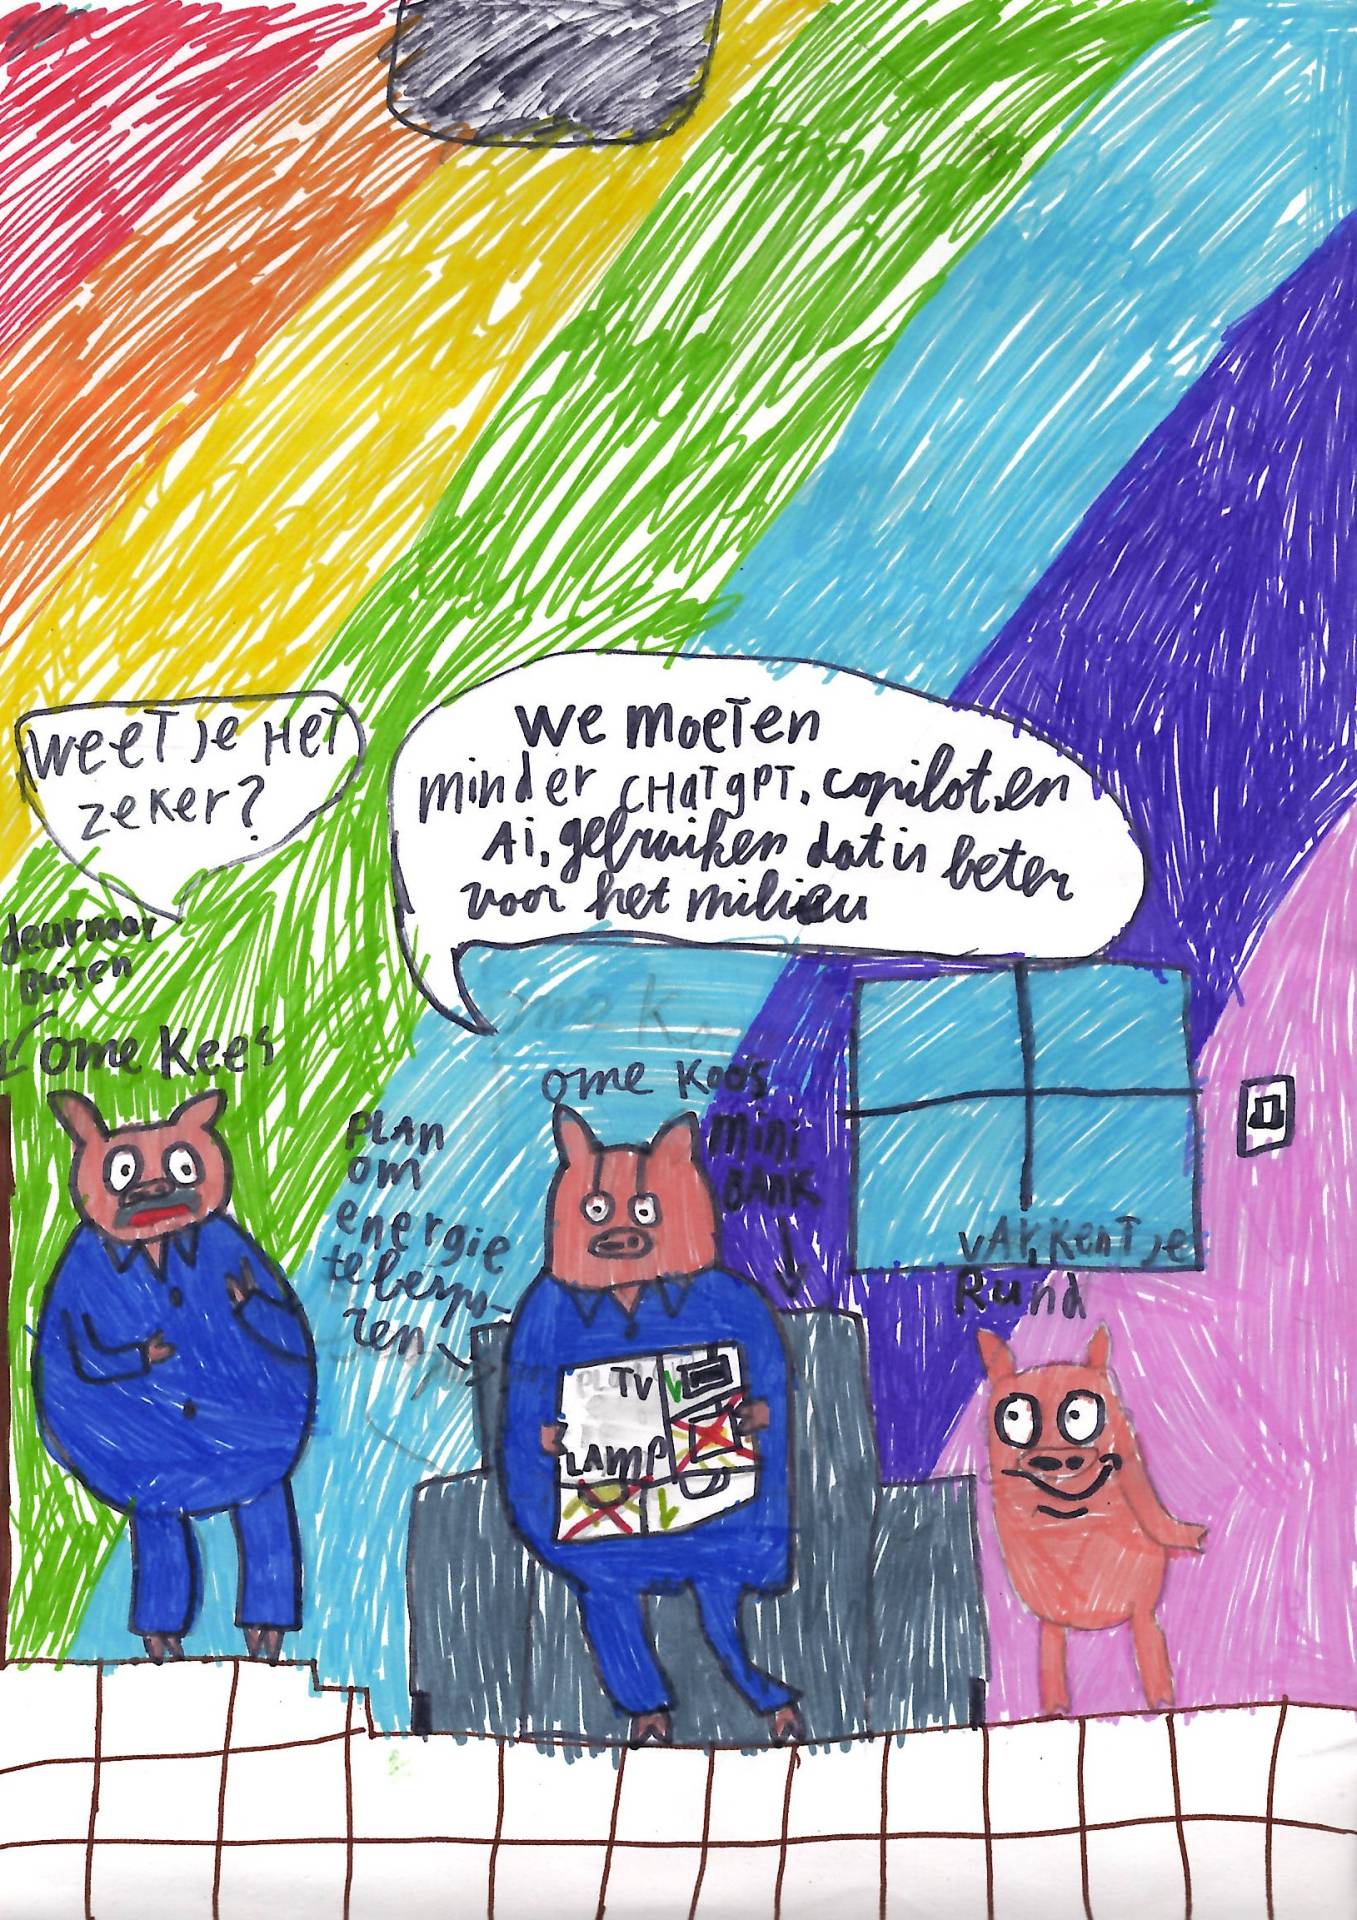 Weet je Het
zeker?
We moeten
minder CHatgpt, copilot, en
Ai, gebruiken dat is beter
voor het milieu
deur naar
Buiten
ome Kees
ome k
ome Koos
PLAN
om
energie
te bespa-
ren
mini
BANK
vArkentje
Rund
TV
LAmP